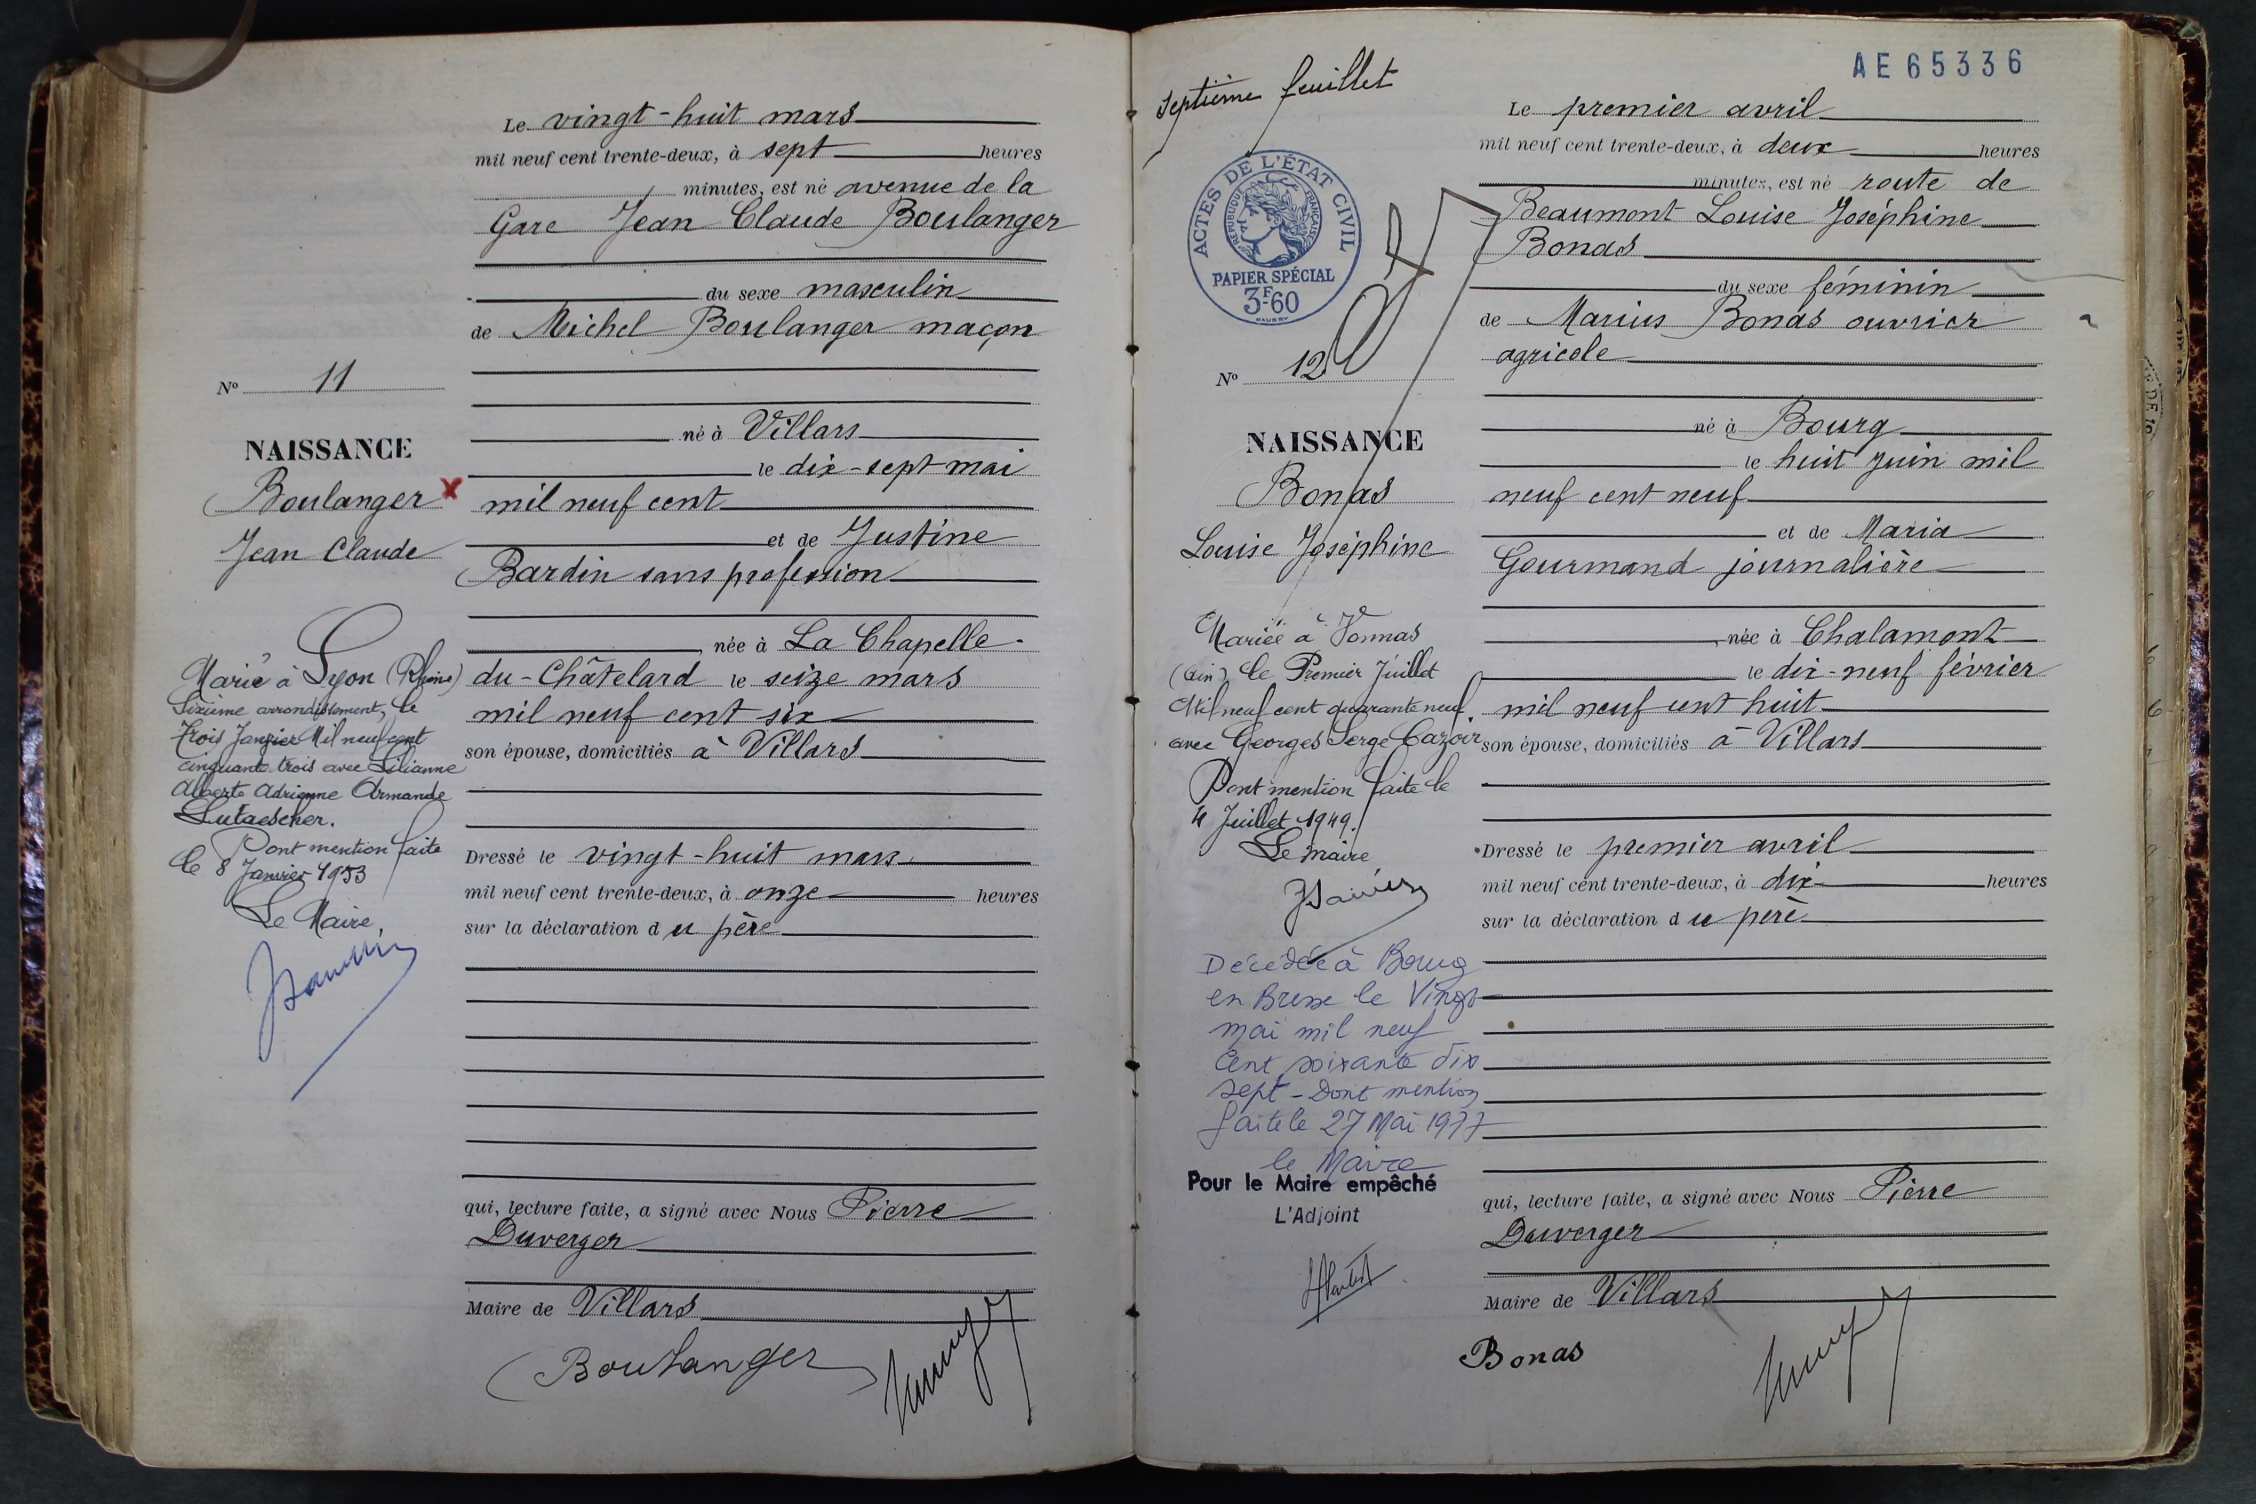 Le vingt-huit mars
mil neuf cent trente-deux, à sept heures
minutes, est né avenue de la
Gare Jean Claude Boulanger
du sexe masculin
de Michel Boulanger maçon
né à Villars
le dix-sept mai
mil neuf cent
et de Justine
Bardin sans profession
née à La Chapelle-
du-Châtelard le seize mars
mil neuf cent six
son épouse, domiciliés à Villars
Dressé le vingt-huit mars
mil neuf cent trente-deux, à onze heures
sur la déclaration du père
qui, lecture faite, a signé avec Nous Pierre
Duverger
Maire de Villars
Boulanger
No 11
NAISSANCE
Boulanger x
Jean Claude
Marié à Lyon (Rhône)
Sixième arrondissement, le
Trois Janvier Mil neuf cent
cinquante trois avec Lilianne
Alberte Adrienne Armande
Lutaescher.
Dont mention faite
le 8 Janvier 1953
Le Maire
septième feuillet
AE65336
ACTES DE L'ÉTAT CIVIL
RÉPUBLIQUE FRANÇAISE
PAPIER SPÉCIAL
3F-60
No 12
NAISSANCE
Bonas
Louise Joséphine
Mariée à Vonnas
(Ain) le Premier Juillet
Mil neuf cent quarante neuf
avec Georges Serge Cazoir
Dont mention faite le
4 Juillet 1949.
Le maire
Décédée à Bourg
en Bresse le Vingt
mai mil neuf
Cent soixante dix
sept - Dont mention
faite le 27 Mai 1977
le Maire
Pour le Maire empêché
L'Adjoint
Le premier avril
mil neuf cent trente-deux, à deux heures
minutes, est né route de
Beaumont Louise Joséphine
Bonas
du sexe féminin
de Marius Bonas ouvrier
agricole
né à Bourg
le huit juin mil
neuf cent neuf
et de Maria
Gourmand journalière
née à Chalamont
le dix-neuf février
mil neuf cent huit
son épouse, domiciliés à Villars
Dressé le premier avril
mil neuf cent trente-deux, à dix heures
sur la déclaration du père
qui, lecture faite, a signé avec Nous Pierre
Duverger
Maire de Villars
Bonas